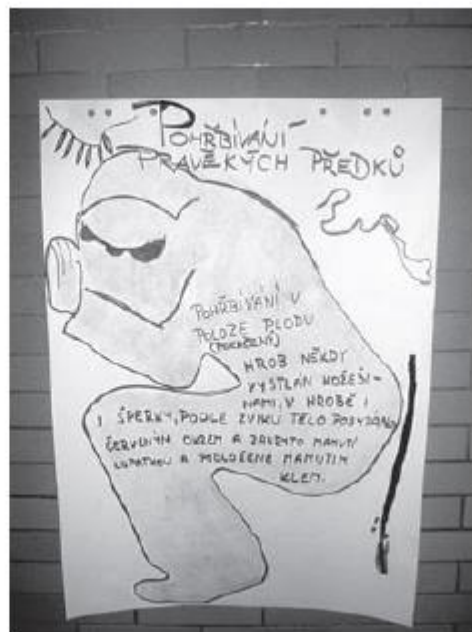 POHŘBÍVÁNÍ
PRAVĚKÝCH PŘEDKŮ
POHŘBÍVÁNÍ V
POLOZE PLODU
HROB NĚKDY
VYSTLÁN KOŽEŠI-
NAMI, V HROBĚ I
I ŠPERKY, PODLE ZVIKU TĚLO POSYPÁNO
ČERVENÝM OKREM A ZAKRYTO MAMUTÍ
LOPATKOU A MAMUTÍM
KLEM.